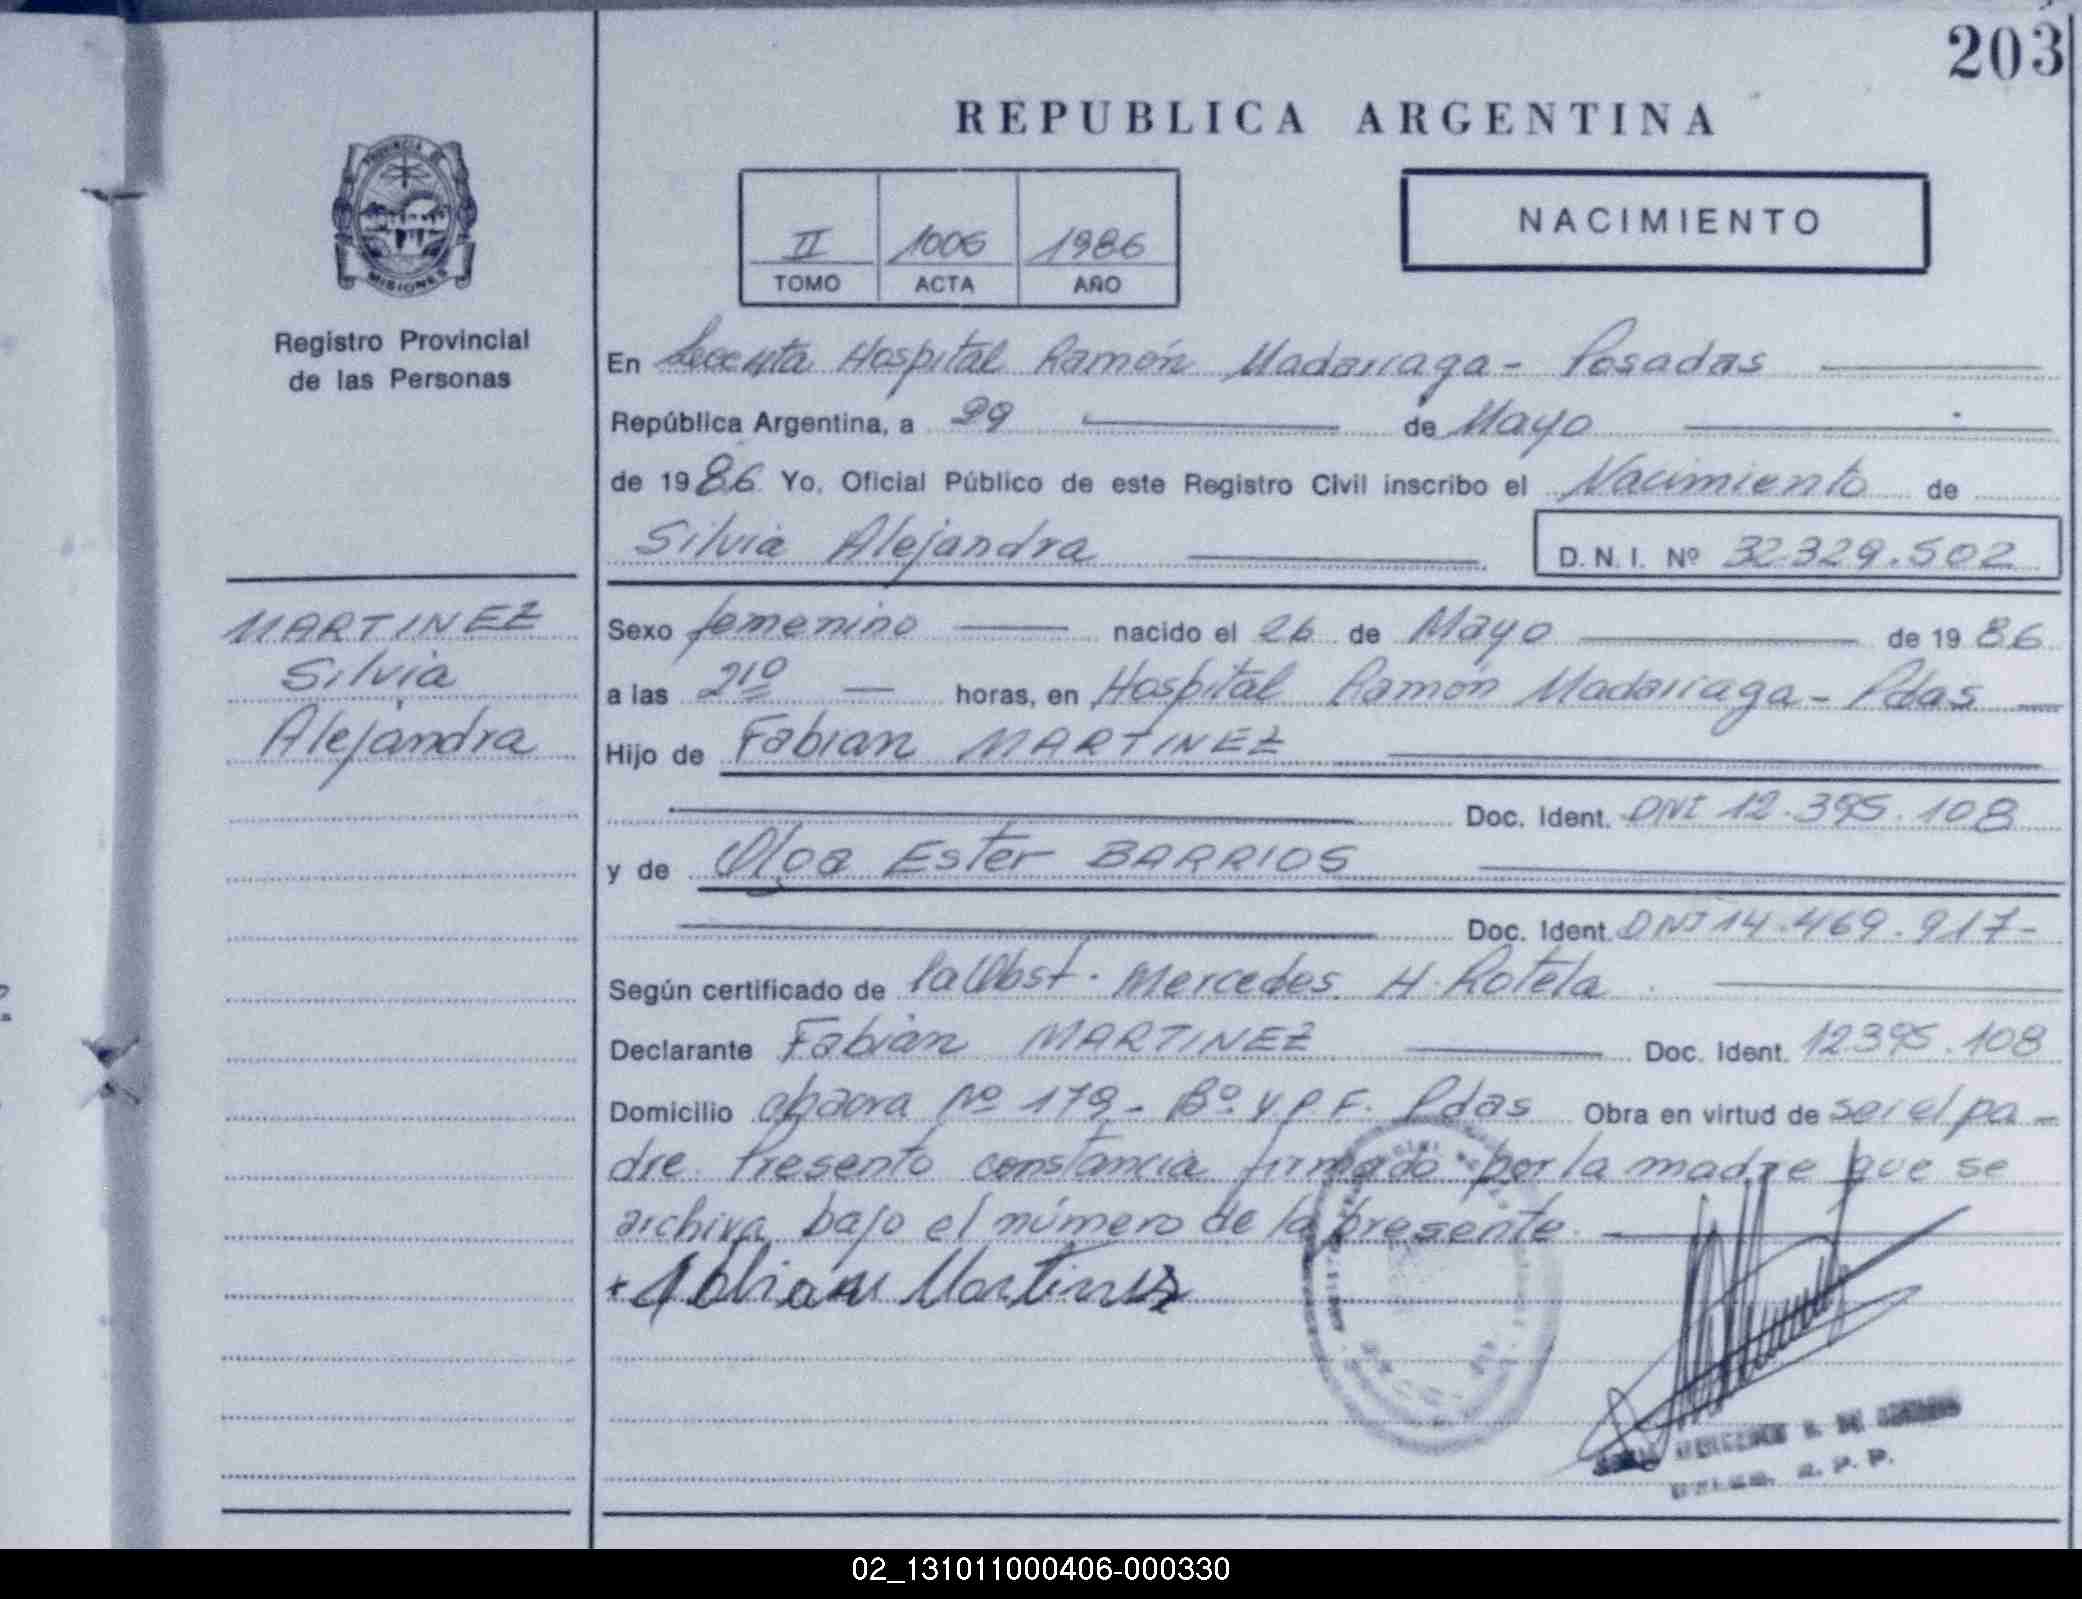 203
REPUBLICA ARGENTINA
PROVINCIA DE
MISIONES
Registro Provincial
de las Personas
II 1006 1986
TOMO ACTA AÑO
NACIMIENTO
En Hospital Ramón Madariaga - Posadas
República Argentina, a 29 de Mayo
de 1986 Yo, Oficial Público de este Registro Civil inscribo el Nacimiento de
Silvia Alejandra D.N.I. Nº 32.329.502
MARTINEZ
Silvia
Alejandra
Sexo femenino nacido el 26 de Mayo de 1986
a las 210 horas, en Hospital Ramón Madariaga - Pdas
Hijo de Fabian MARTINEZ
Doc. Ident. DNI 12.395.108
y de Olga Ester BARRIOS
Doc. Ident. DNI 14.469.917-
Según certificado de la Obst. Mercedes H. Rotela
Declarante Fabián MARTINEZ Doc. Ident. 12395.108
Domicilio Nº 179 - Bº Y P F. Pdas Obra en virtud de ser el pa-
dre. Presento constancia firmado por la madre que se
archiva bajo el número de la presente.
Fabian Martinez
02_131011000406-000330